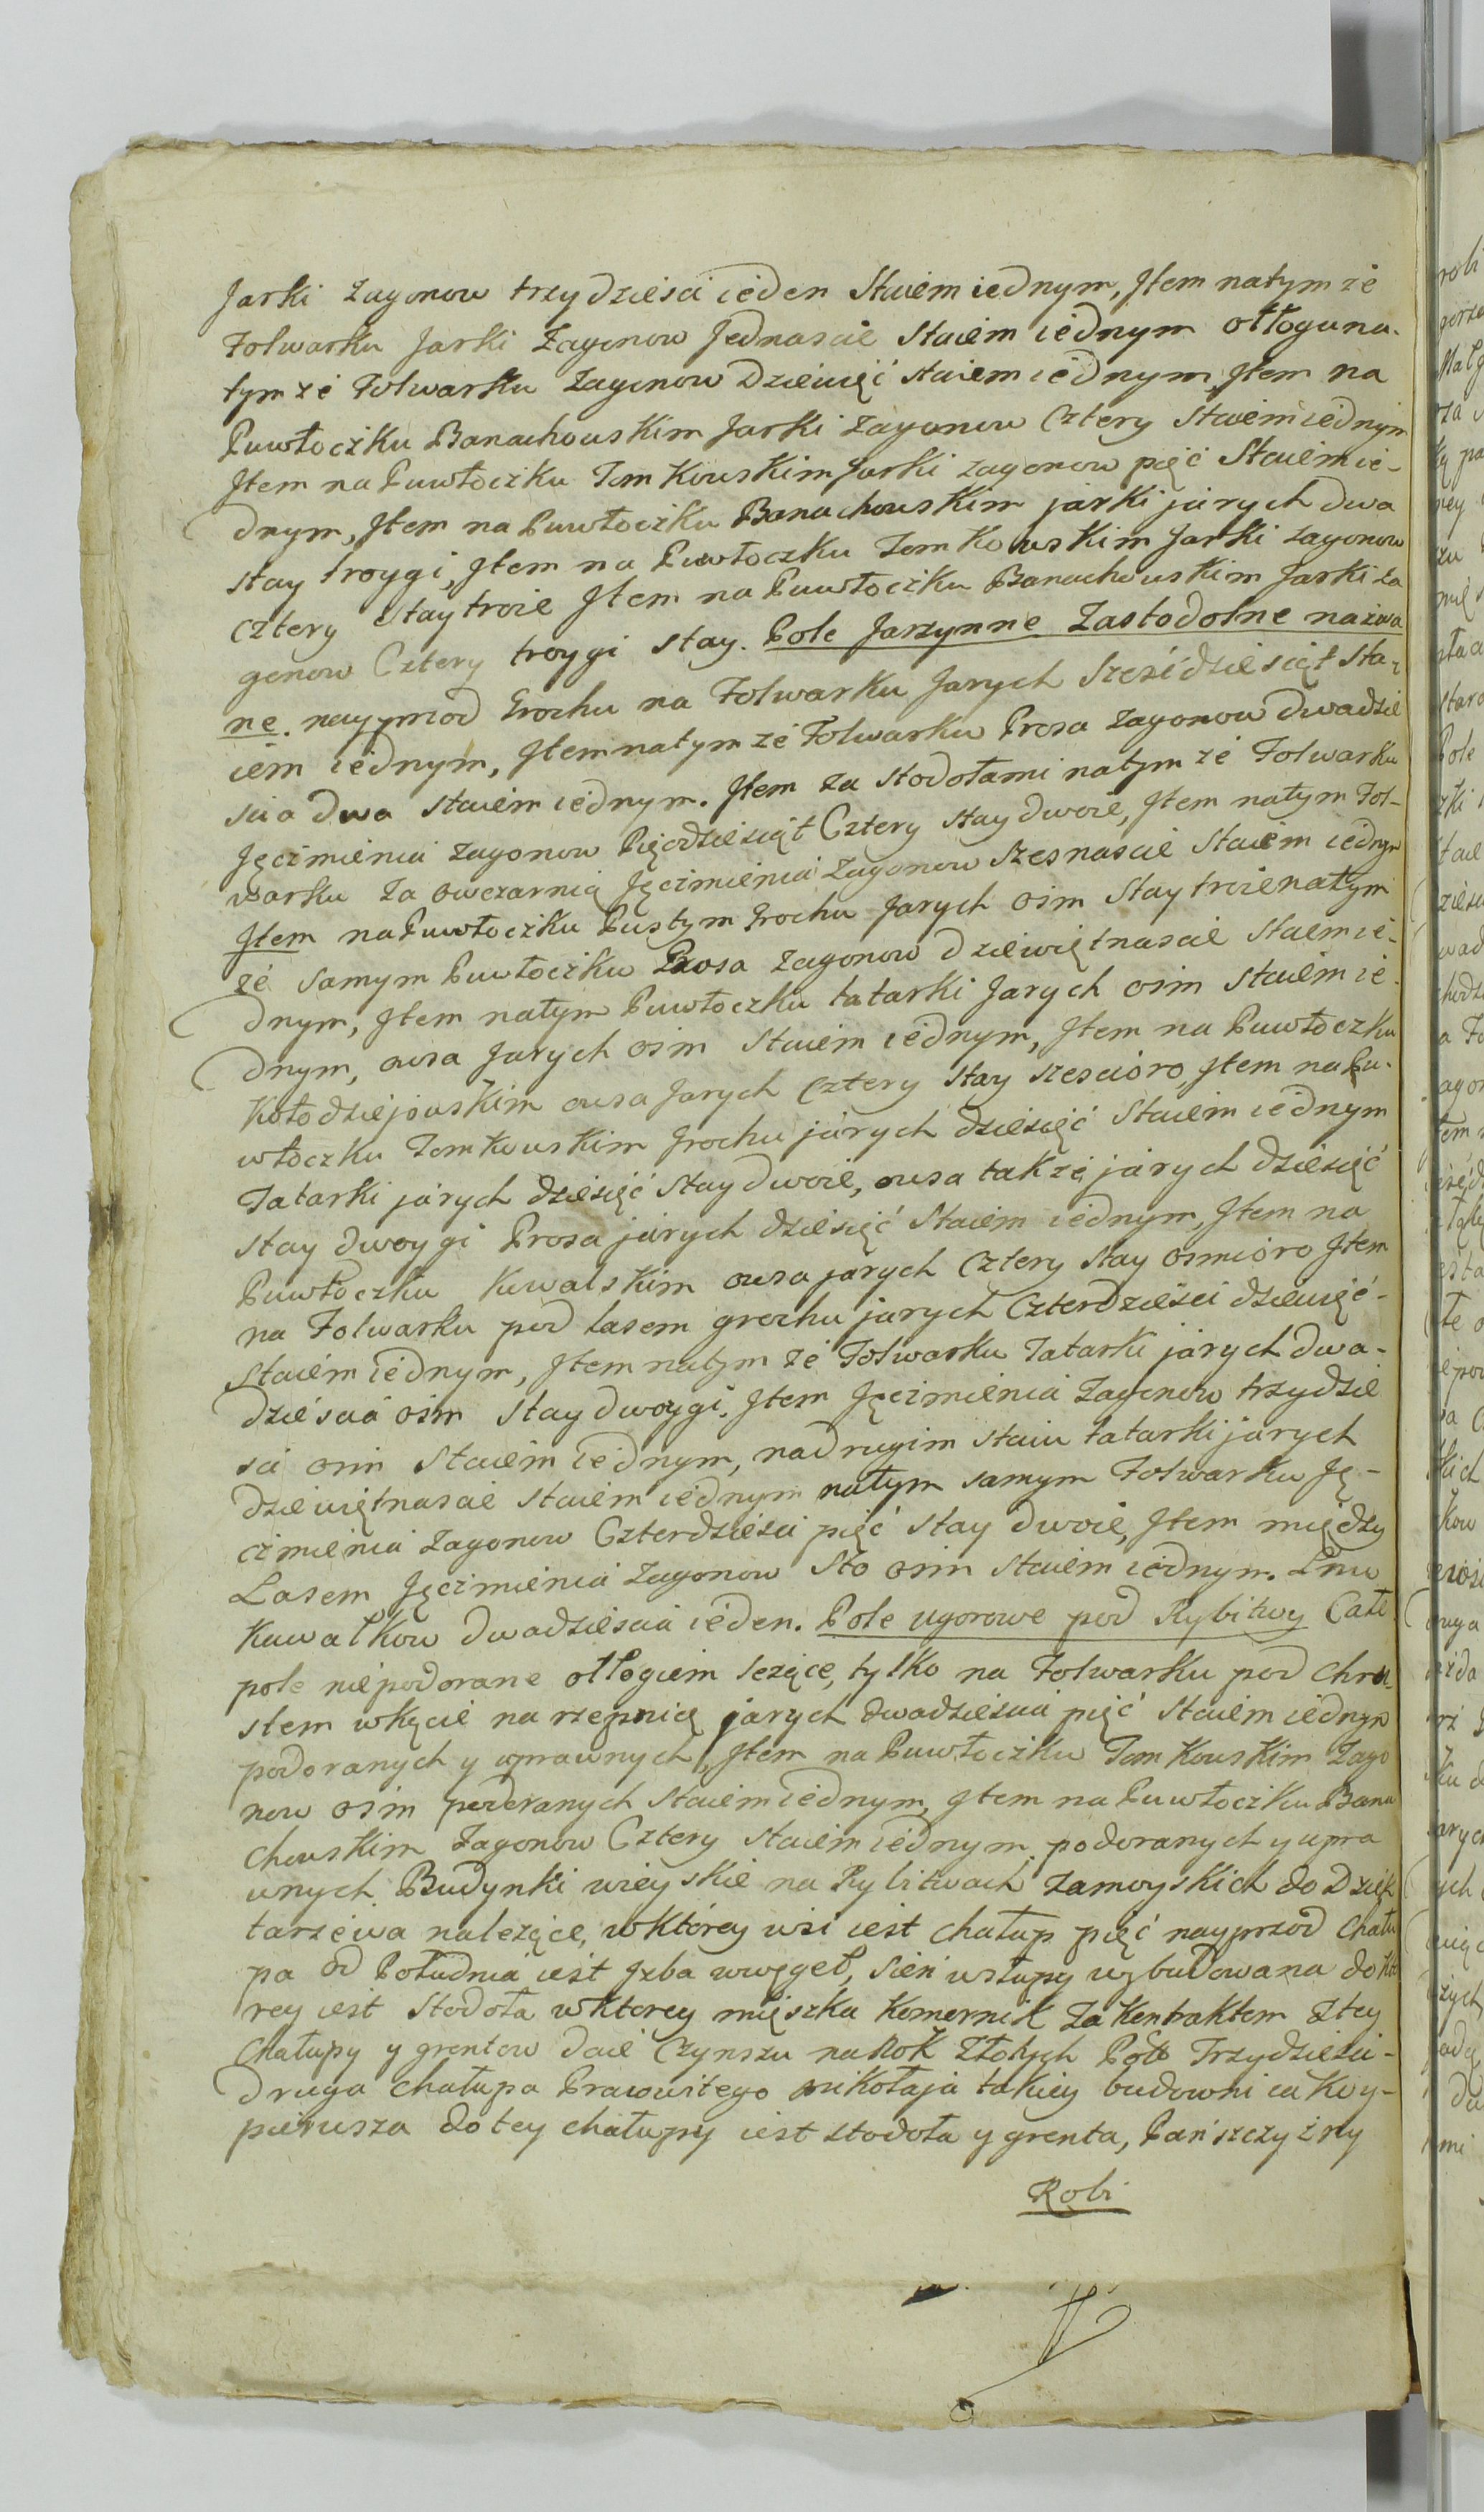 Jarki zagonow trzydziesci ieden Staiem iednym, Jtem natym ze
Folwarku Jarki Zagonow Jednascie Staiem iednym otłoguna-
tym ze Folwarku Zagonow Dziewięć staiem iednym Jtem na
Puwłoczku Banachowskim Jarki Zagonow Cztery Staiem iednym
Jtem na Puwłoczku Tomkowskim Jarki zagonow pięć Staiem ie-
dnym, Jtem na Puwłoczku Banachowskim jarki jarych dwa
stay troygi, Jtem na Puwłoczku Tomkowskim Jarki zagonow
cztery Stay troie Jtem na Puwłoczku Banachowskim Jarki za
gonow Cztery troygi stay. Pole Jarzynne Zastodolne nazwa
ne. nayprzod Grochu na Folwarku Jarych Szesćdziesiąt Sta-
iem iednym, Jtem natym ze Folwarku Prosa zagonow dwadzie
scia dwa staiem iednym. Jtem za stodołami natym ze Folwarku
Jęczmienia zagonow Pięcdziesiąt Cztery stay dwoie, Jtem natym Fol-
warku za owczarnią Jęczmienia Zagonow Szesnascie Staiem iednym
Jtem na Puwłoczku Pustym Grochu Jarych osim Stay troie natym
ze samym Puwłoczku Prosa Zagonow dziewiętnascie Staiem ie-
dnym, Jtem natym Puwłoczku tatarki Jarych osim staiem ie-
dnym, owsa Jarych osim Staiem iednym, Jtem na Puwłoczku
Kołodziejowskim owsa Jarych Cztery stay szescioro, Jtem na Pu-
włoczku Tomkowskim Grochu jarych dziesięć Staiem iednym
Tatarki jarych dziesięć stay dwoie, owsa także jarych dziesięć
stay dwoygi Prosa jarych dziesięć Staiem iednym, Jtem na
Puwłoczku Kowalskim owsa jarych Cztery stay osmioro Jtem
na Folwarku pod lasem grochu jarych Czterdziesci dziewięć-
staiem iednym, Jtem natym ze Folwarku Tatarki jarych dwa-
dziescia osim Stay dwoygi. Jtem Jęczmienia Zagonow trzydzie
sci osim Staiem iednym, nadrugim staiu tatarki jarych
dziewiętnascie staiem iednym natym samym Folwarku Ję-
czmienia Zagonow Czterdziesci pięć stay dwoie, Jtem między
Lasem Jęczmienia Zagonow Sto osim staiem iednym. Lnu
Kawałkow dwadziescia ieden. Pole ugorowe pod Rybitwy Całe
pole niepodorane otłogiem leżące, tylko na Folwarku pod chro-
stem wkącie na rzepnicę jarych dwadziescia pięć Staiem iednym
podoranych y uprawnych, Jtem na Puwłoczku Tomkowskim Zago
now osim podoranych staiem iednym, Jtem na Puwłoczku Bana
chowskim Zagonow Cztery staiem iednym podoranych y upra
wnych Budynki wieyskie na Rybitwach Zamoyskich do Dziek
tarzewa należące, wktórey wsi iest chałup pięć nayprzod chału
pa od Południa iest Jzba wwęgeł, Sień wsłupy wybudowana do któ
rey iest stodoła wktorey mięszka Komernik za Kontraktem Ztey
Chałupy y grontow daie Czynszu na Rok Złotych Pół Trzydziesci-
druga chałupa Pracowitego mikołaja takiey budowni iakoy-
pierwsza dotey chałupy iest stodoła y gronta, Pańszczyżny
Robi